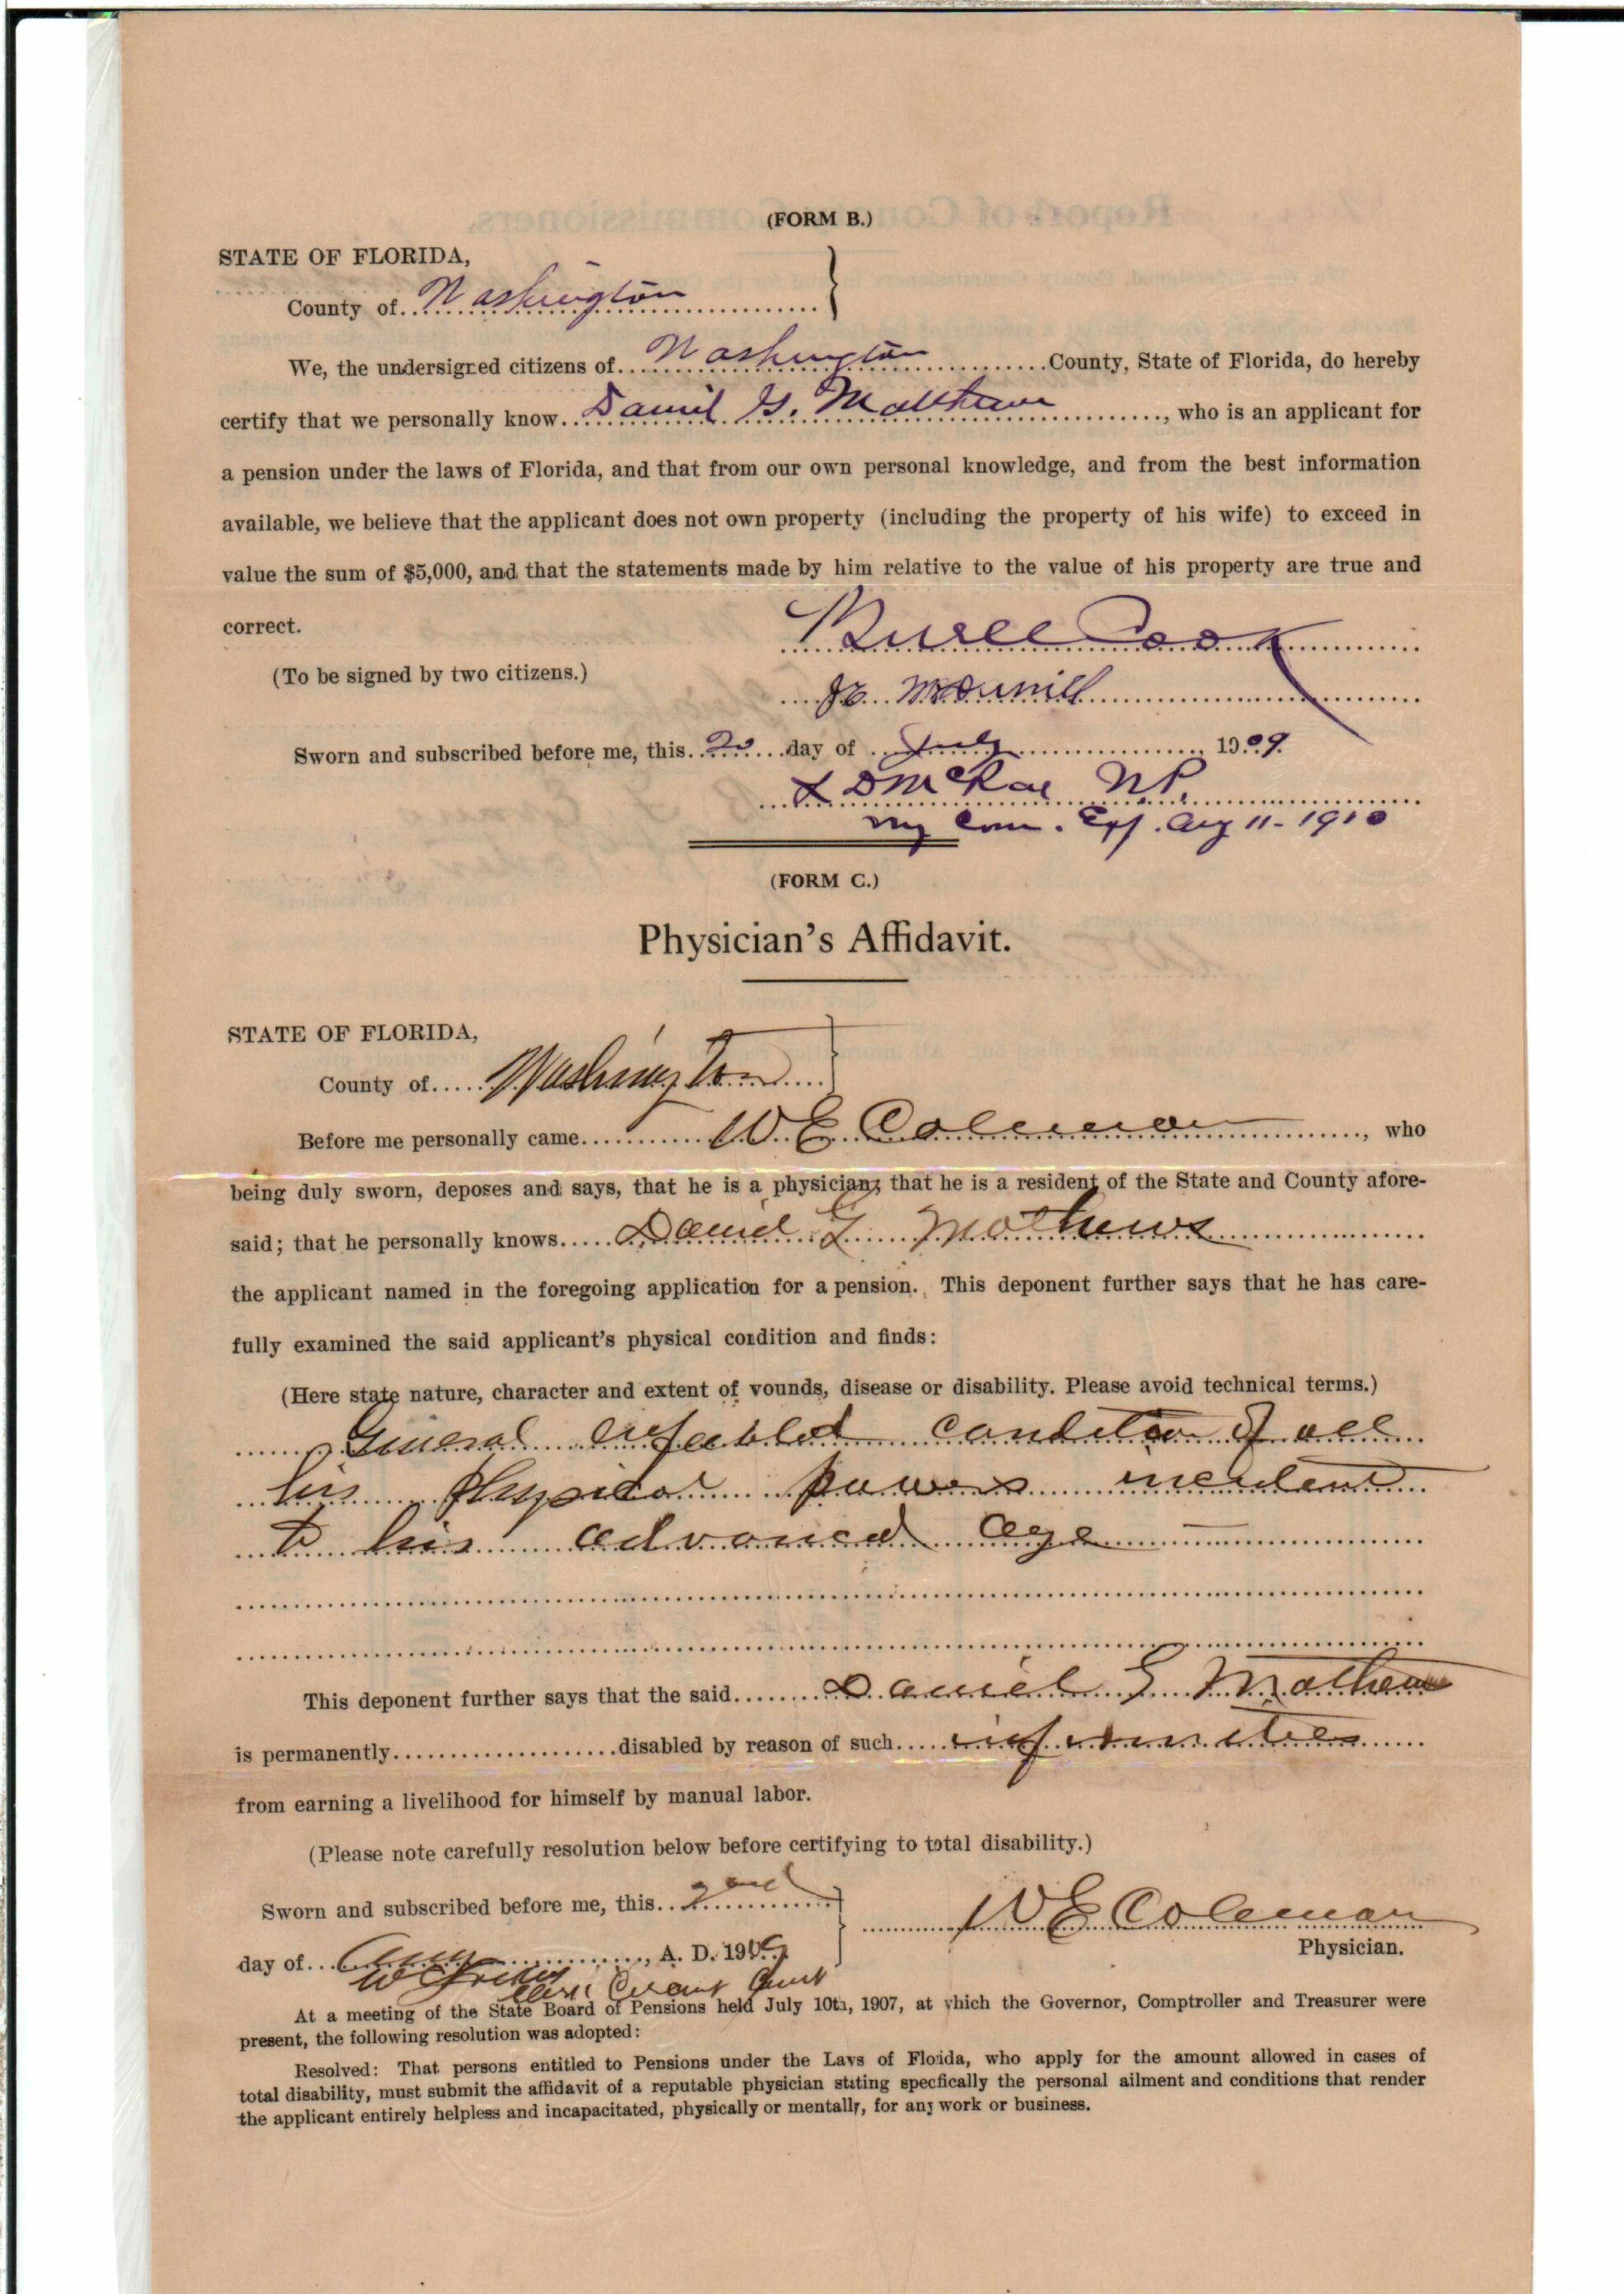 (FORM B.)
STATE OF FLORIDA,
County of Washington
We, the undersigned citizens of Washington County, State of Florida, do hereby
certify that we personally know Daniel G. Matthews, who is an applicant for
a pension under the laws of Florida, and that from our own personal knowledge, and from the best information
available, we believe that the applicant does not own property (including the property of his wife) to exceed in
value the sum of $5,000, and that the statements made by him relative to the value of his property are true and
correct.
Burell Cook
(To be signed by two citizens.)
Sworn and subscribed before me, this 20 day of July, 1909.
L D McRae N.P.
My Com. Exp. Aug 11-1910
(FORM C.)
Physician's Affidavit.
STATE OF FLORIDA,
County of Washington
Before me personally came W E Coleman, who
being duly sworn, deposes and says, that he is a physician; that he is a resident of the State and County afore-
said; that he personally knows Daniel G Mathews
the applicant named in the foregoing application for a pension. This deponent further says that he has care-
fully examined the said applicant's physical condition and finds:
(Here state nature, character and extent of wounds, disease or disability. Please avoid technical terms.)
General enfeebled condition of all
his physical powers incident
to his advanced age
This deponent further says that the said Daniel G Mathews
is permanently disabled by reason of such infirmities
from earning a livelihood for himself by manual labor.
(Please note carefully resolution below before certifying to total disability.)
Sworn and subscribed before me, this 2nd
W E Coleman
Physician.
day of Aug, A. D. 1909.
Clerk Circuit Court
At a meeting of the State Board of Pensions held July 10th, 1907, at which the Governor, Comptroller and Treasurer were
present, the following resolution was adopted:
Resolved: That persons entitled to Pensions under the Laws of Florida, who apply for the amount allowed in cases of
total disability, must submit the affidavit of a reputable physician stating specfically the personal ailment and conditions that render
the applicant entirely helpless and incapacitated, physically or mentally, for any work or business.